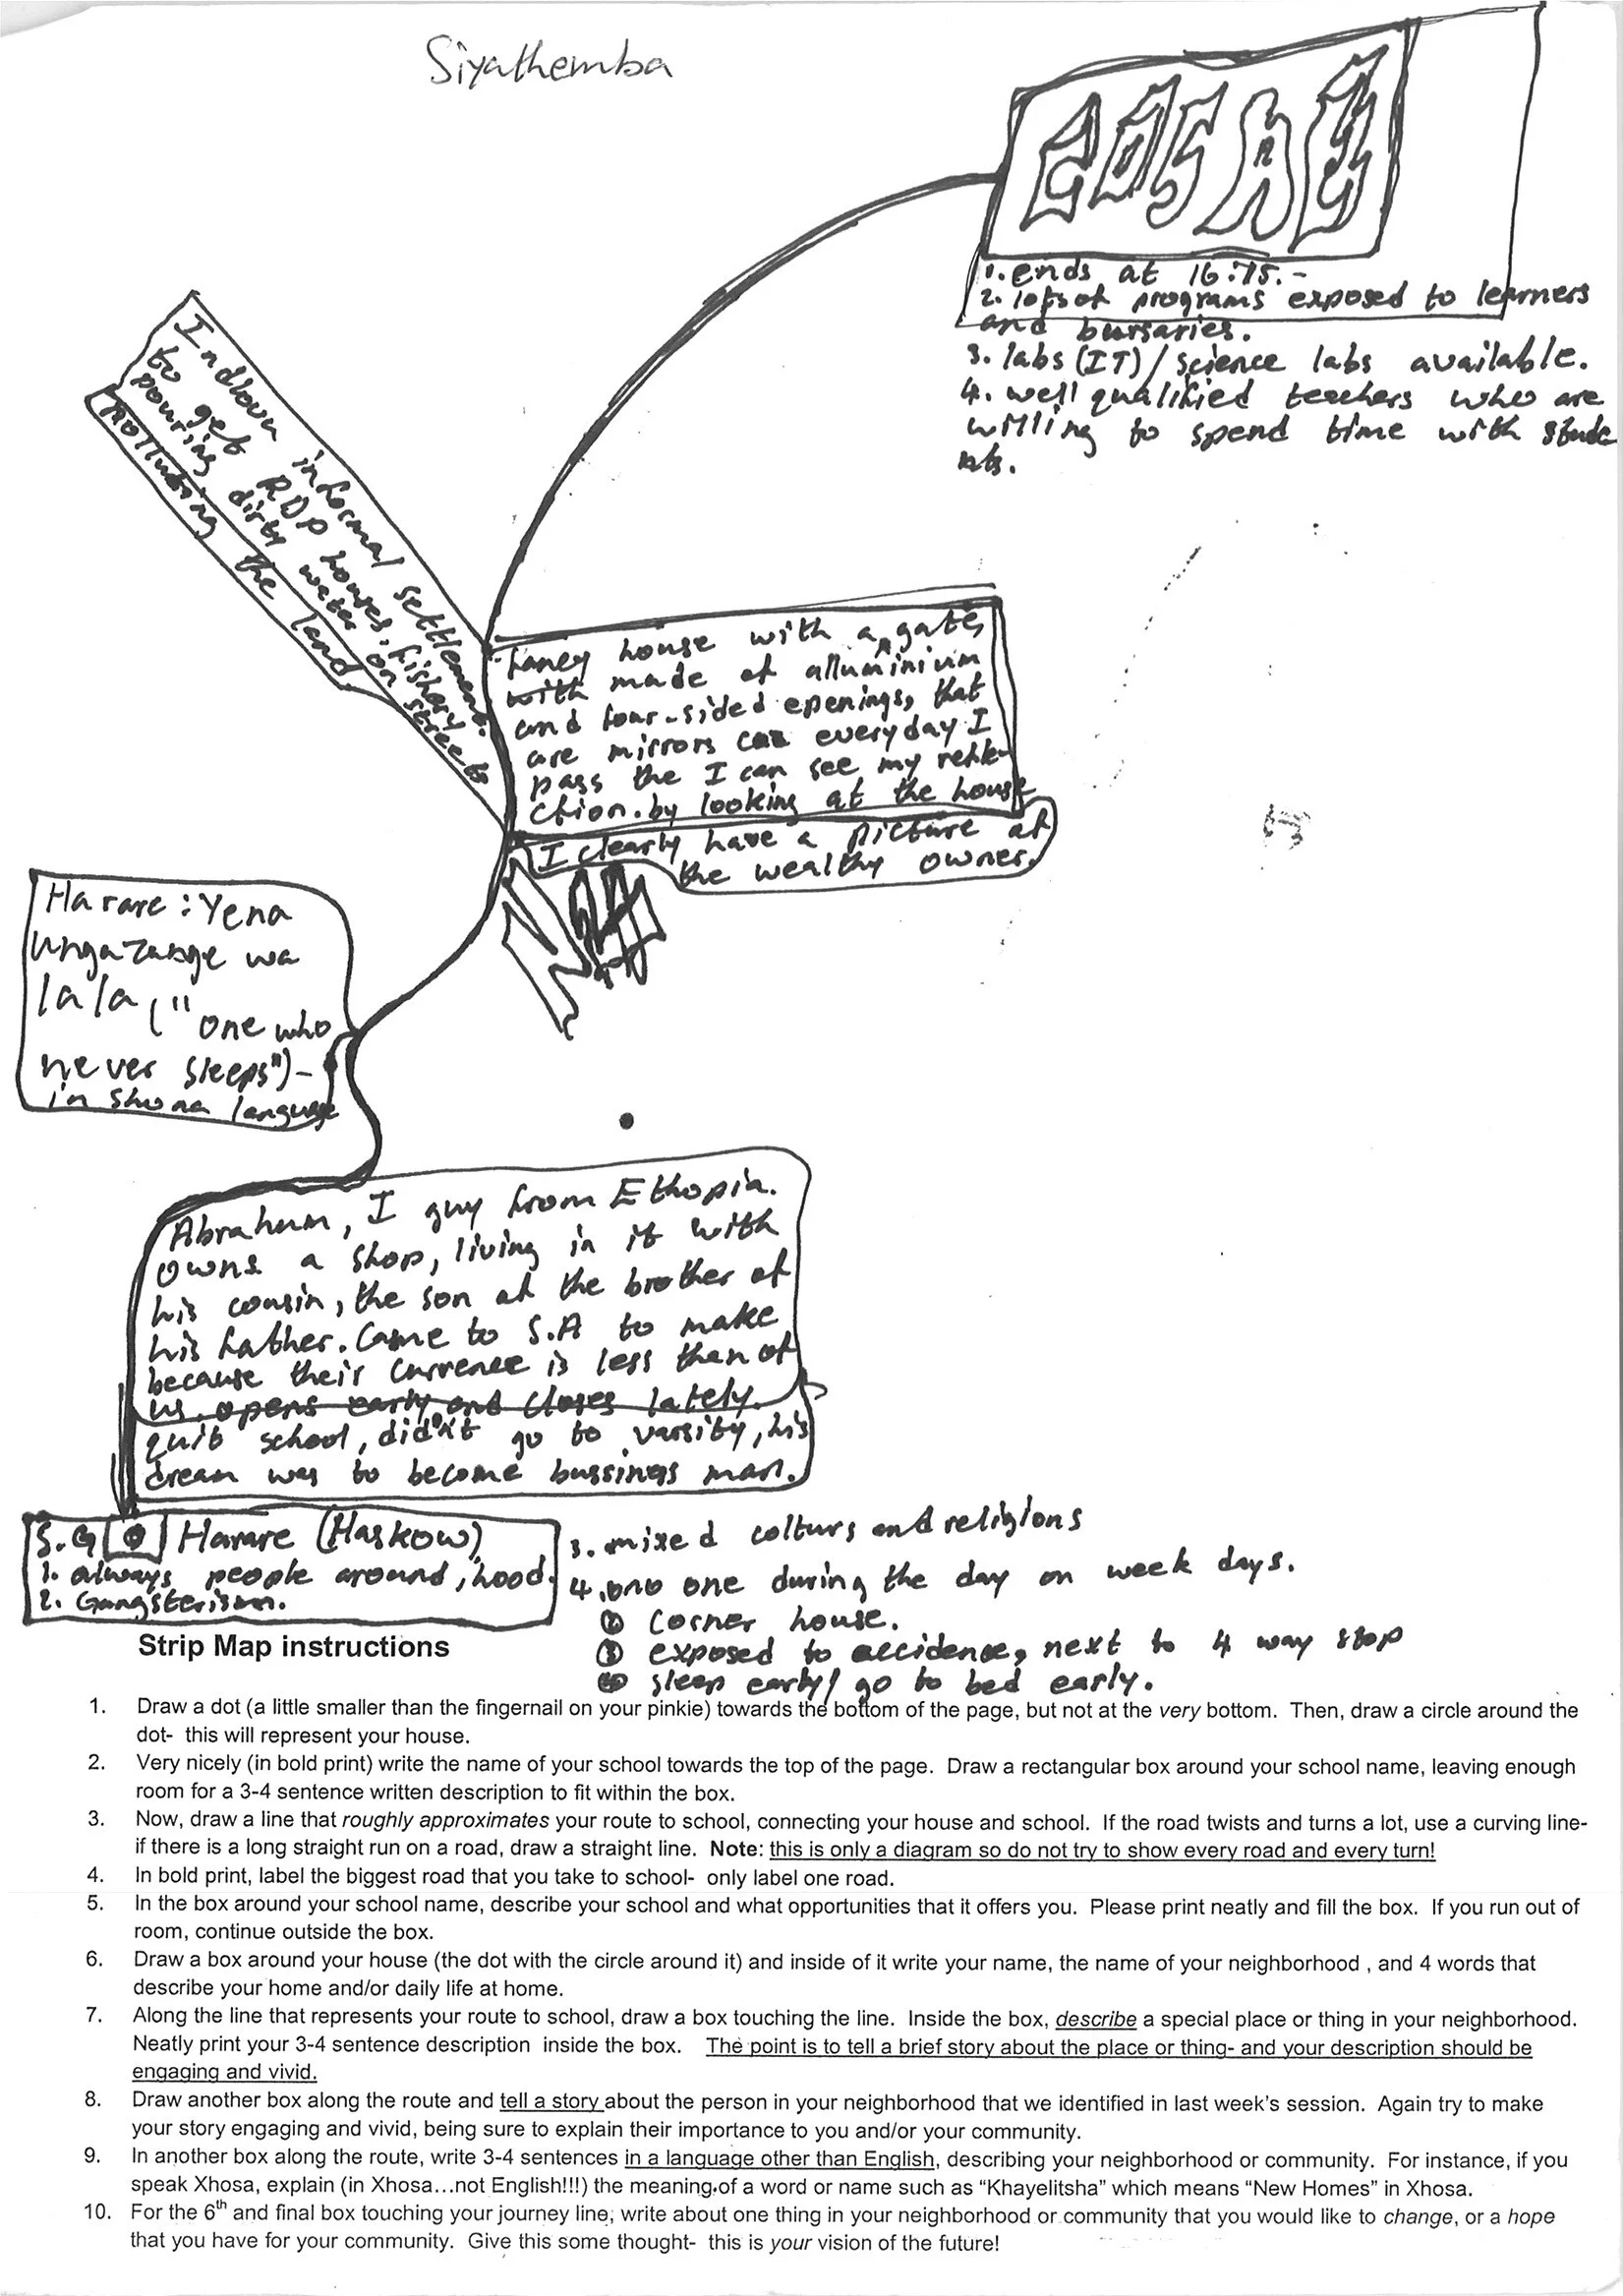 Siyathemba
COSAT
1. ends at 16:15.-
2. lots of programs exposed to learners
and bursaries.
3. labs (IT) / science labs available.
4. well qualified teachers who are
willing to spend time with stude
nts.
Indlovu informal settlement.
to get RDP houses, fishery
pouring dirty water on streets
polluting the land
fancy house with a gate,
with made of alluminium
and four-sided openings, that
are mirrors everyday I
pass the I can see my refle-
ction. by looking at the house
I clearly have a picture of
the wealthy owner.
Harare: Yena
Ungazange wa
lala, ("one who
never sleeps")-
in shona language
Abraham, I guy from Ethopia.
owns a shop, living in it with
his cousin, the son of the brother of
his father. Came to S.A to make
because their currence is less than of
us. opens early and closes lately.
quit school, didn't go to varsity, his
dream was to become bussiness man.
S.G Harare (Haskow)
1. always people around, hood.
2. Gangsterism.
3. mixed colturs and religions
4. no one during the day on week days.
② corner house.
③ exposed to accidence, next to 4 way stop
④ sleep early/ go to bed early.
Strip Map instructions
1. Draw a dot (a little smaller than the fingernail on your pinkie) towards the bottom of the page, but not at the very bottom. Then, draw a circle around the
dot- this will represent your house.
2. Very nicely (in bold print) write the name of your school towards the top of the page. Draw a rectangular box around your school name, leaving enough
room for a 3-4 sentence written description to fit within the box.
3. Now, draw a line that roughly approximates your route to school, connecting your house and school. If the road twists and turns a lot, use a curving line-
if there is a long straight run on a road, draw a straight line. Note: this is only a diagram so do not try to show every road and every turn!
4. In bold print, label the biggest road that you take to school- only label one road.
5. In the box around your school name, describe your school and what opportunities that it offers you. Please print neatly and fill the box. If you run out of
room, continue outside the box.
6. Draw a box around your house (the dot with the circle around it) and inside of it write your name, the name of your neighborhood , and 4 words that
describe your home and/or daily life at home.
7. Along the line that represents your route to school, draw a box touching the line. Inside the box, describe a special place or thing in your neighborhood.
Neatly print your 3-4 sentence description inside the box. The point is to tell a brief story about the place or thing- and your description should be
engaging and vivid.
8. Draw another box along the route and tell a story about the person in your neighborhood that we identified in last week's session. Again try to make
your story engaging and vivid, being sure to explain their importance to you and/or your community.
9. In another box along the route, write 3-4 sentences in a language other than English, describing your neighborhood or community. For instance, if you
speak Xhosa, explain (in Xhosa...not English!!!) the meaning of a word or name such as “Khayelitsha” which means “New Homes” in Xhosa.
10. For the 6th and final box touching your journey line, write about one thing in your neighborhood or community that you would like to change, or a hope
that you have for your community. Give this some thought- this is your vision of the future!